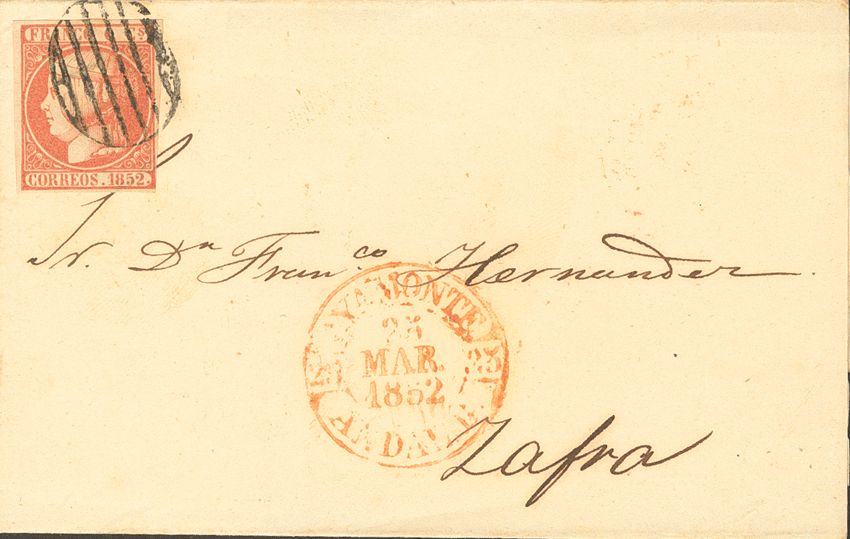 FRANCO 6 Cs
CORREOS. 1852.
Sr. Dn Franco Hernandez.
AYAMONTE
25
MAR.
1852
Zafra